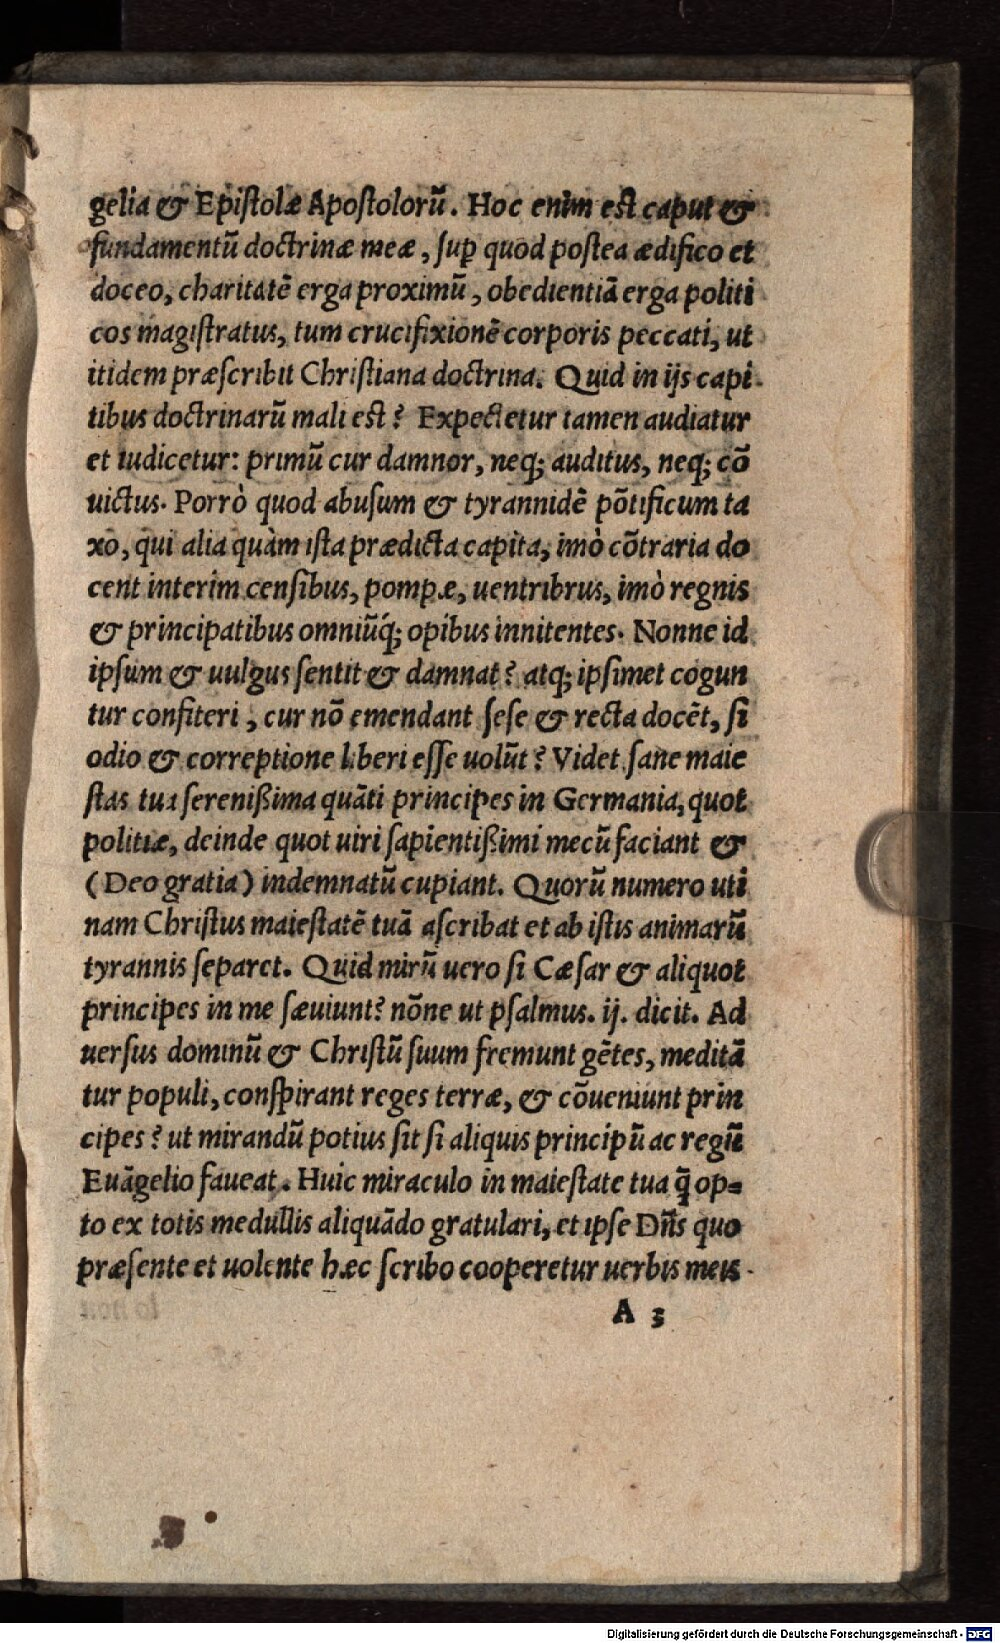 gelia & Epistolæ Apostolorū. Hoc enim est caput &
fundamentū doctrinæ meæ, sup̱ quod postea ædifico et
doceo, charitatē erga proximū, obedientiā erga politi
cos magistratus, tum crucifixionē corporis peccati, ut
itidem præscribit Christiana doctrina. Quid in ijs capi
tibus doctrinarū mali est? Expectetur tamen audiatur
et iudicetur: primū cur damnor, neq; auditus, neq; cō
uictus. Porrò quod abusum & tyrannidē pōtificum ta
xo, qui alia quàm ista prædicta capita, imò cōtraria do
cent interim censibus, pompæ, uentribrus, imò regnis
& principatibus omniūq́; opibus innitentes. Nonne id
ipsum & uulgus sentit & damnat? atq; ipsimet cogun
tur confiteri, cur nō emendant sese & recta docēt, si
odio & correptione liberi esse uolūt? Videt sane maie
stas tua serenißima quāti principes in Germania, quot
politiæ, deinde quot uiri sapientißimi mecū faciant &
(Deo gratia) indemnatū cupiant. Quorū numero uti
nam Christus maiestatē tuā ascribat et ab istis animarū
tyrannis separet. Quid mirū uero si Cæsar & aliquot
principes in me sæuiunt? nōne ut psalmus. ij. dicit. Ad
uersus dominū & Christū suum fremunt gētes, meditā
tur populi, conspirant reges terræ, & cōueniunt prin
cipes? ut mirandū potius sit si aliquis principū ac regū
Euāgelio faueat. Huic miraculo in maiestate tua q̄ op=
to ex totis medullis aliquādo gratulari, et ipse Dn̄s quo
præsente et uolente hæc scribo cooperetur uerbis meis.
A 3
Digitalisierung gefördert durch die Deutsche Forschungsgemeinschaft - DFG